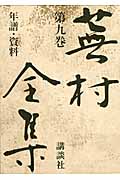 蕪村全集
第九巻
年譜・資料
講談社